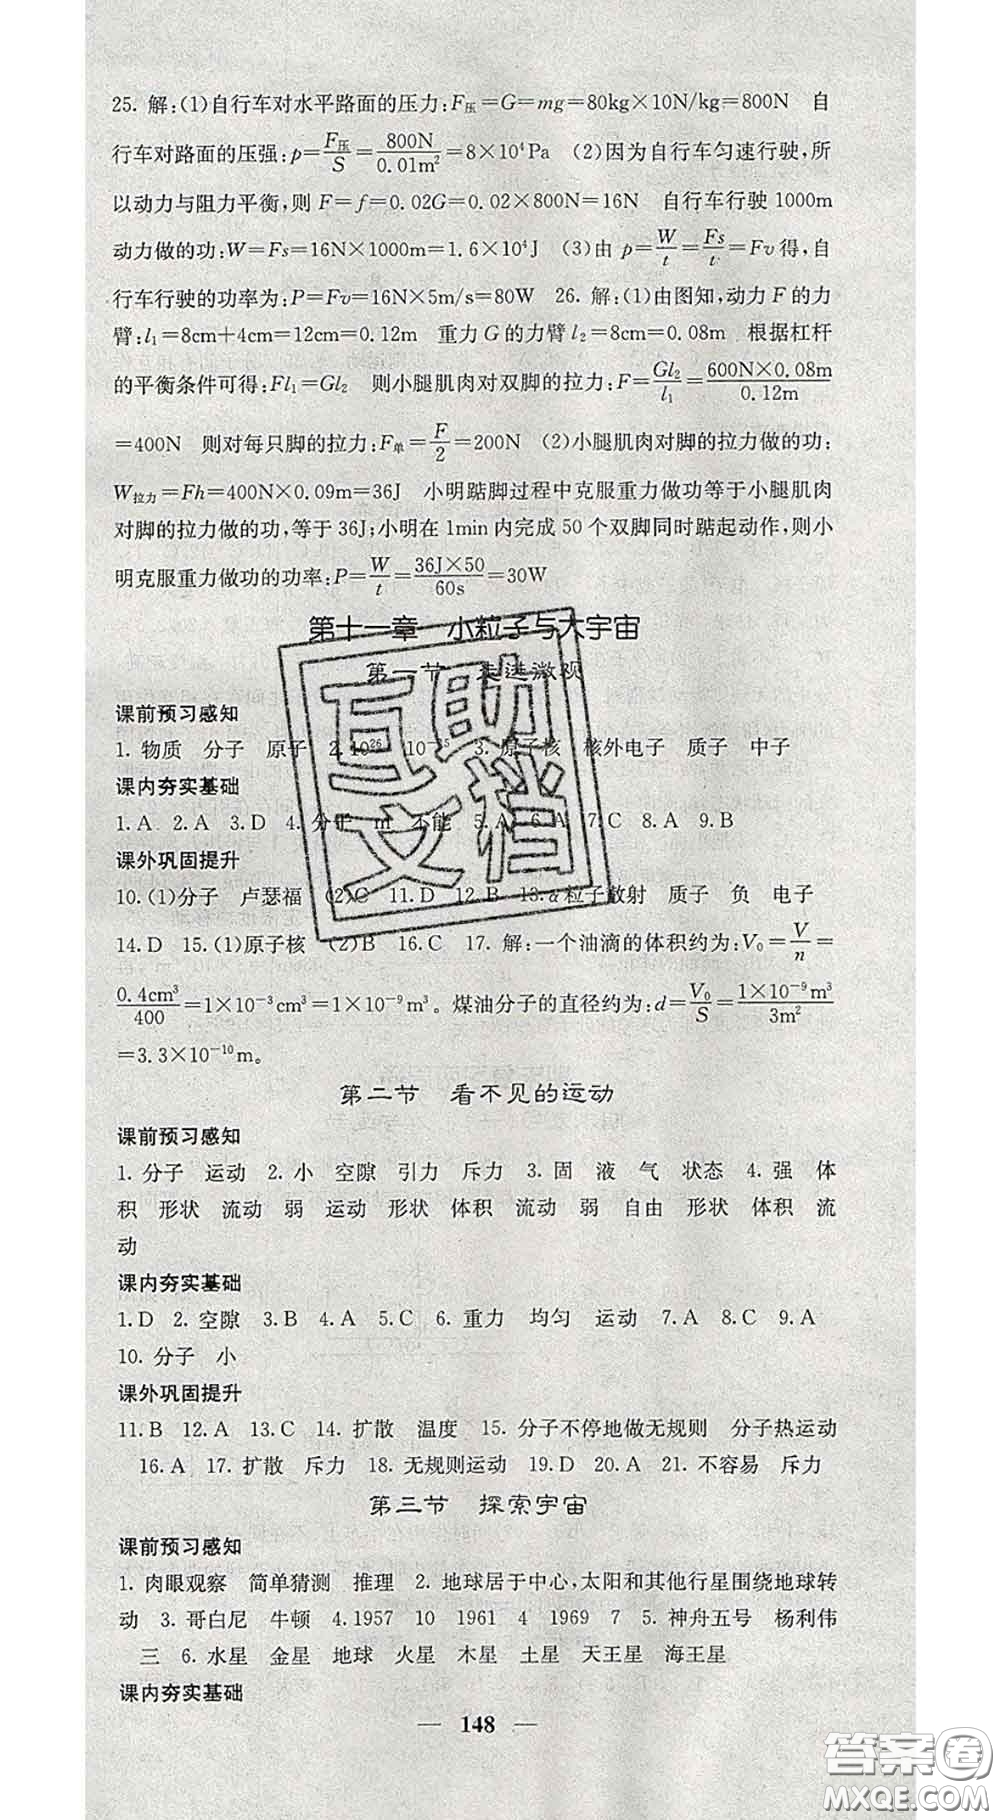 25. 解:(1)自行车对水平路面的压力:F压=G=mg=80kg×10N/kg=800N 自
行车对路面的压强:p=F压/S=800N/0.01m²=8×10⁴Pa (2)因为自行车匀速行驶,所
以动力与阻力平衡,则 F=f=0.02G=0.02×800N=16N 自行车行驶 1000m
动力做的功:W=Fs=16N×1000m=1.6×10⁴J (3)由 p=W/t=Fs/t=Fv得,自
行车行驶的功率为:P=Fv=16N×5m/s=80W 26. 解:(1)由图知,动力 F 的力
臂:l₁=8cm+4cm=12cm=0.12m 重力 G 的力臂 l₂=8cm=0.08m 根据杠杆
的平衡条件可得:Fl₁=Gl₂ 则小腿肌肉对双脚的拉力:F=Gl₂/l₁=600N×0.08m/0.12m
=400N 则对每只脚的拉力:F单=F/2=200N (2)小腿肌肉对脚的拉力做的功:
W拉力=Fh=400N×0.09m=36J 小明踮脚过程中克服重力做功等于小腿肌肉
对脚的拉力做的功,等于 36J;小明在 1min 内完成 50 个双脚同时踮起动作,则小
明克服重力做功的功率:P=W/t=36J×50/60s=30W
第十一章 小粒子与大宇宙
第一节 走进微观
课前预习感知
1. 物质 分子 原子 2. 10²⁶ 10⁻²⁵ 3. 原子核 核外电子 质子 中子
课内夯实基础
1. A 2. A 3. D 4. 分子 m 不能 5. A 6. A 7. C 8. A 9. B
课外巩固提升
10. (1)分子 卢瑟福 (2)C 11. D 12. B 13. α粒子散射 质子 负 电子
14. D 15. (1)原子核 (2)B 16. C 17. 解:一个油滴的体积约为:V₀=V/n=
0.4cm³/400=1×10⁻³cm³=1×10⁻⁹m³。煤油分子的直径约为:d=V₀/S=1×10⁻⁹m³/3m²
=3.3×10⁻¹⁰m。
第二节 看不见的运动
课前预习感知
1. 分子 运动 2. 小 空隙 引力 斥力 3. 固 液 气 状态 4. 强 体
积 形状 流动 弱 运动 形状 体积 流动 弱 自由 形状 体积 流
动
课内夯实基础
1. D 2. 空隙 3. B 4. A 5. C 6. 重力 均匀 运动 7. A 8. C 9. A
10. 分子 小
课外巩固提升
11. B 12. A 13. C 14. 扩散 温度 15. 分子不停地做无规则 分子热运动
16. A 17. 扩散 斥力 18. 无规则运动 19. D 20. A 21. 不容易 斥力
第三节 探索宇宙
课前预习感知
1. 肉眼观察 简单猜测 推理 2. 地球居于中心,太阳和其他行星围绕地球转
动 3. 哥白尼 牛顿 4. 1957 10 1961 4 1969 7 5. 神舟五号 杨利伟
三 6. 水星 金星 地球 火星 木星 土星 天王星 海王星
课内夯实基础
— 148 —
互助
文档
答案圈
MXQE.COM